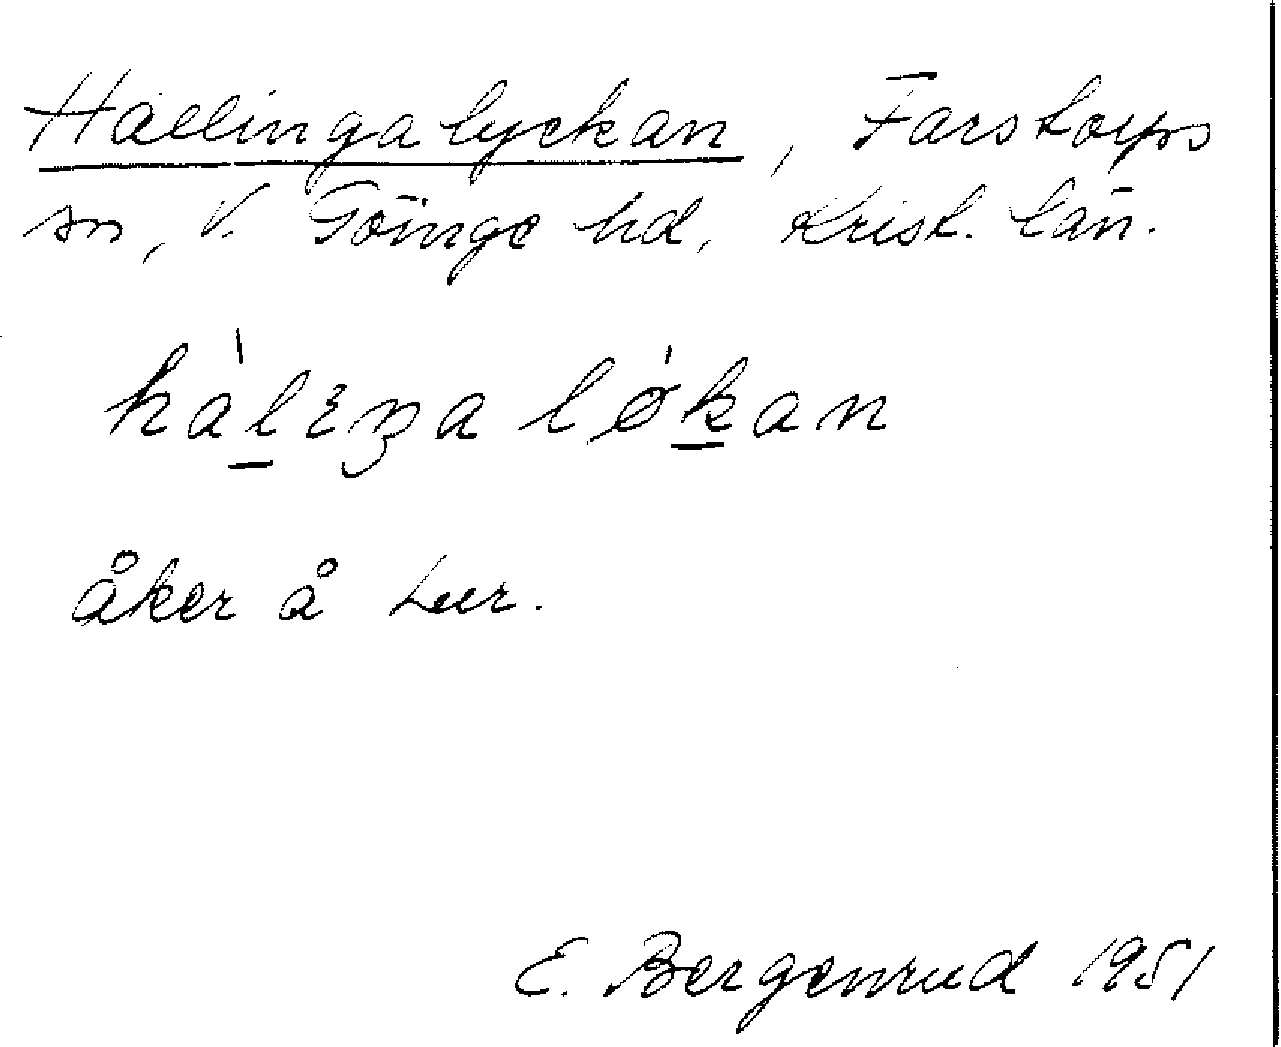 Hallingalyckan, Farstorps
sn, V. Göinge hd, Krist. län.
hàlɛŋa løkan
åker å Lur.
E. Bergenrud 1951